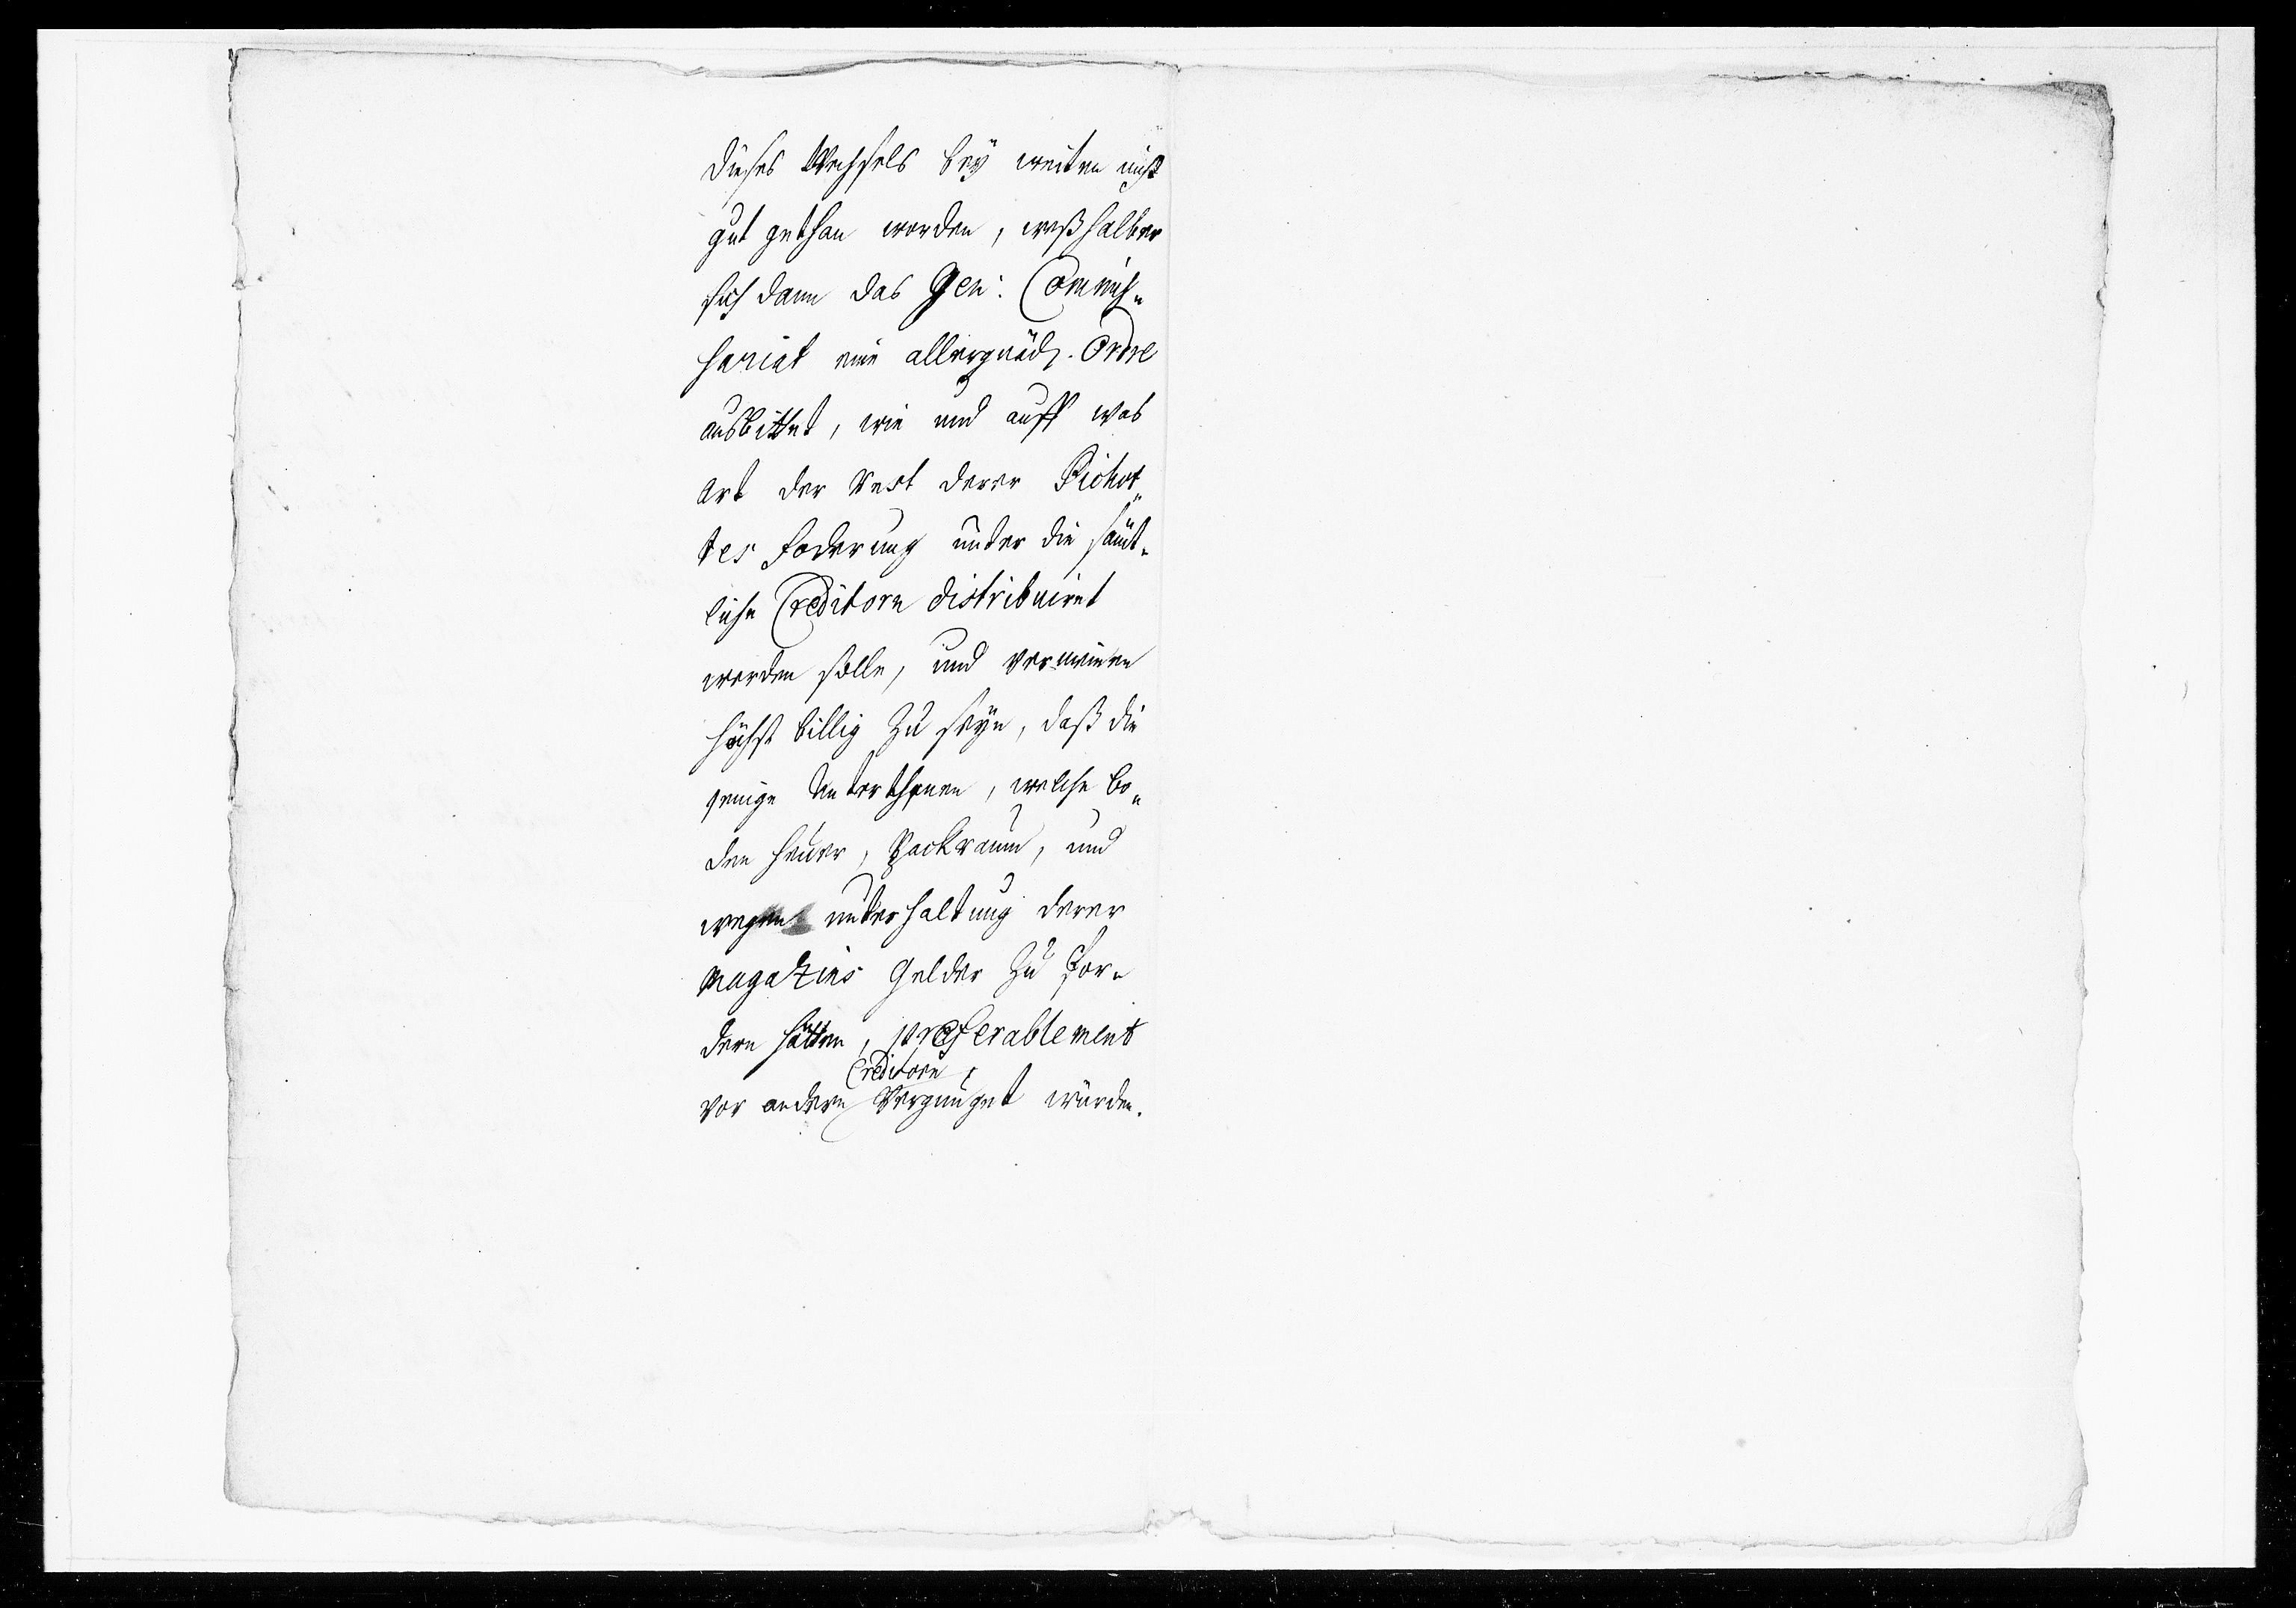 dieses Wechsels beÿ weiten nicht
gut gethan worden, weßhalber
sich dann das Gen: Commis-
sariat eine allergnäd. Ordre
ausbittet, wie und auff was
Art der Rest derer Pichot-
tes foderung unter die sämt-
liche Creditorn distribuiret
werden solle, und vermeinen
höchst billig zu seÿn, daß die
jenige Unterthanen, welche bo-
den heuer, Packraum, und
wegen unterhaltung derer
Magazins Gelder zu for-
dern hätten, preferablement
vor andern Creditorn vergnüget würden.